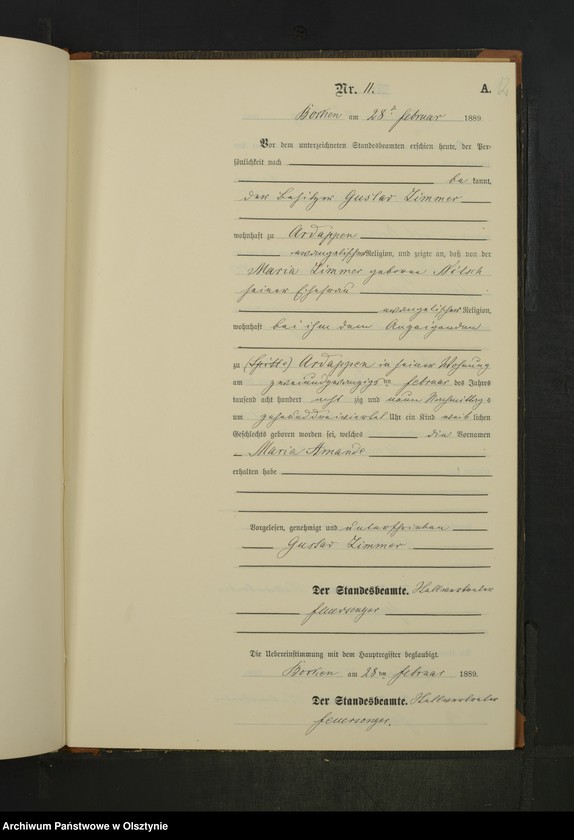 Nr. 11. A. 12
Borken am 28ten Februar 1889.
Vor dem unterzeichneten Standesbeamten erschien heute, der Per-
sönlichkeit nach
be kannt,
der Besitzer Gustav Zimmer
wohnhaft zu Ardappen
evangelischer Religion, und zeigte an, daß von der
Maria Zimmer geborene Nitsch
seiner Ehefrau
evangelischer Religion,
wohnhaft bei ihm dem Anzeigenden
zu Ardappen in seiner Wohnung
am zweiundzwanzigsten Februar des Jahres
tausend acht hundert acht zig und neun Nachmittags
um zehnunddreiviertel Uhr ein Kind weib lichen
Geschlechts geboren worden sei, welches die Vornamen
Maria Amande
erhalten habe
Vorgelesen, genehmigt und unterschrieben
Gustav Zimmer
Der Standesbeamte.
Feuersenger
Die Uebereinstimmung mit dem Hauptregister beglaubigt.
Borken am 28ten Februar 1889.
Der Standesbeamte.
Feuersenger.
Archiwum Państwowe w Olsztynie